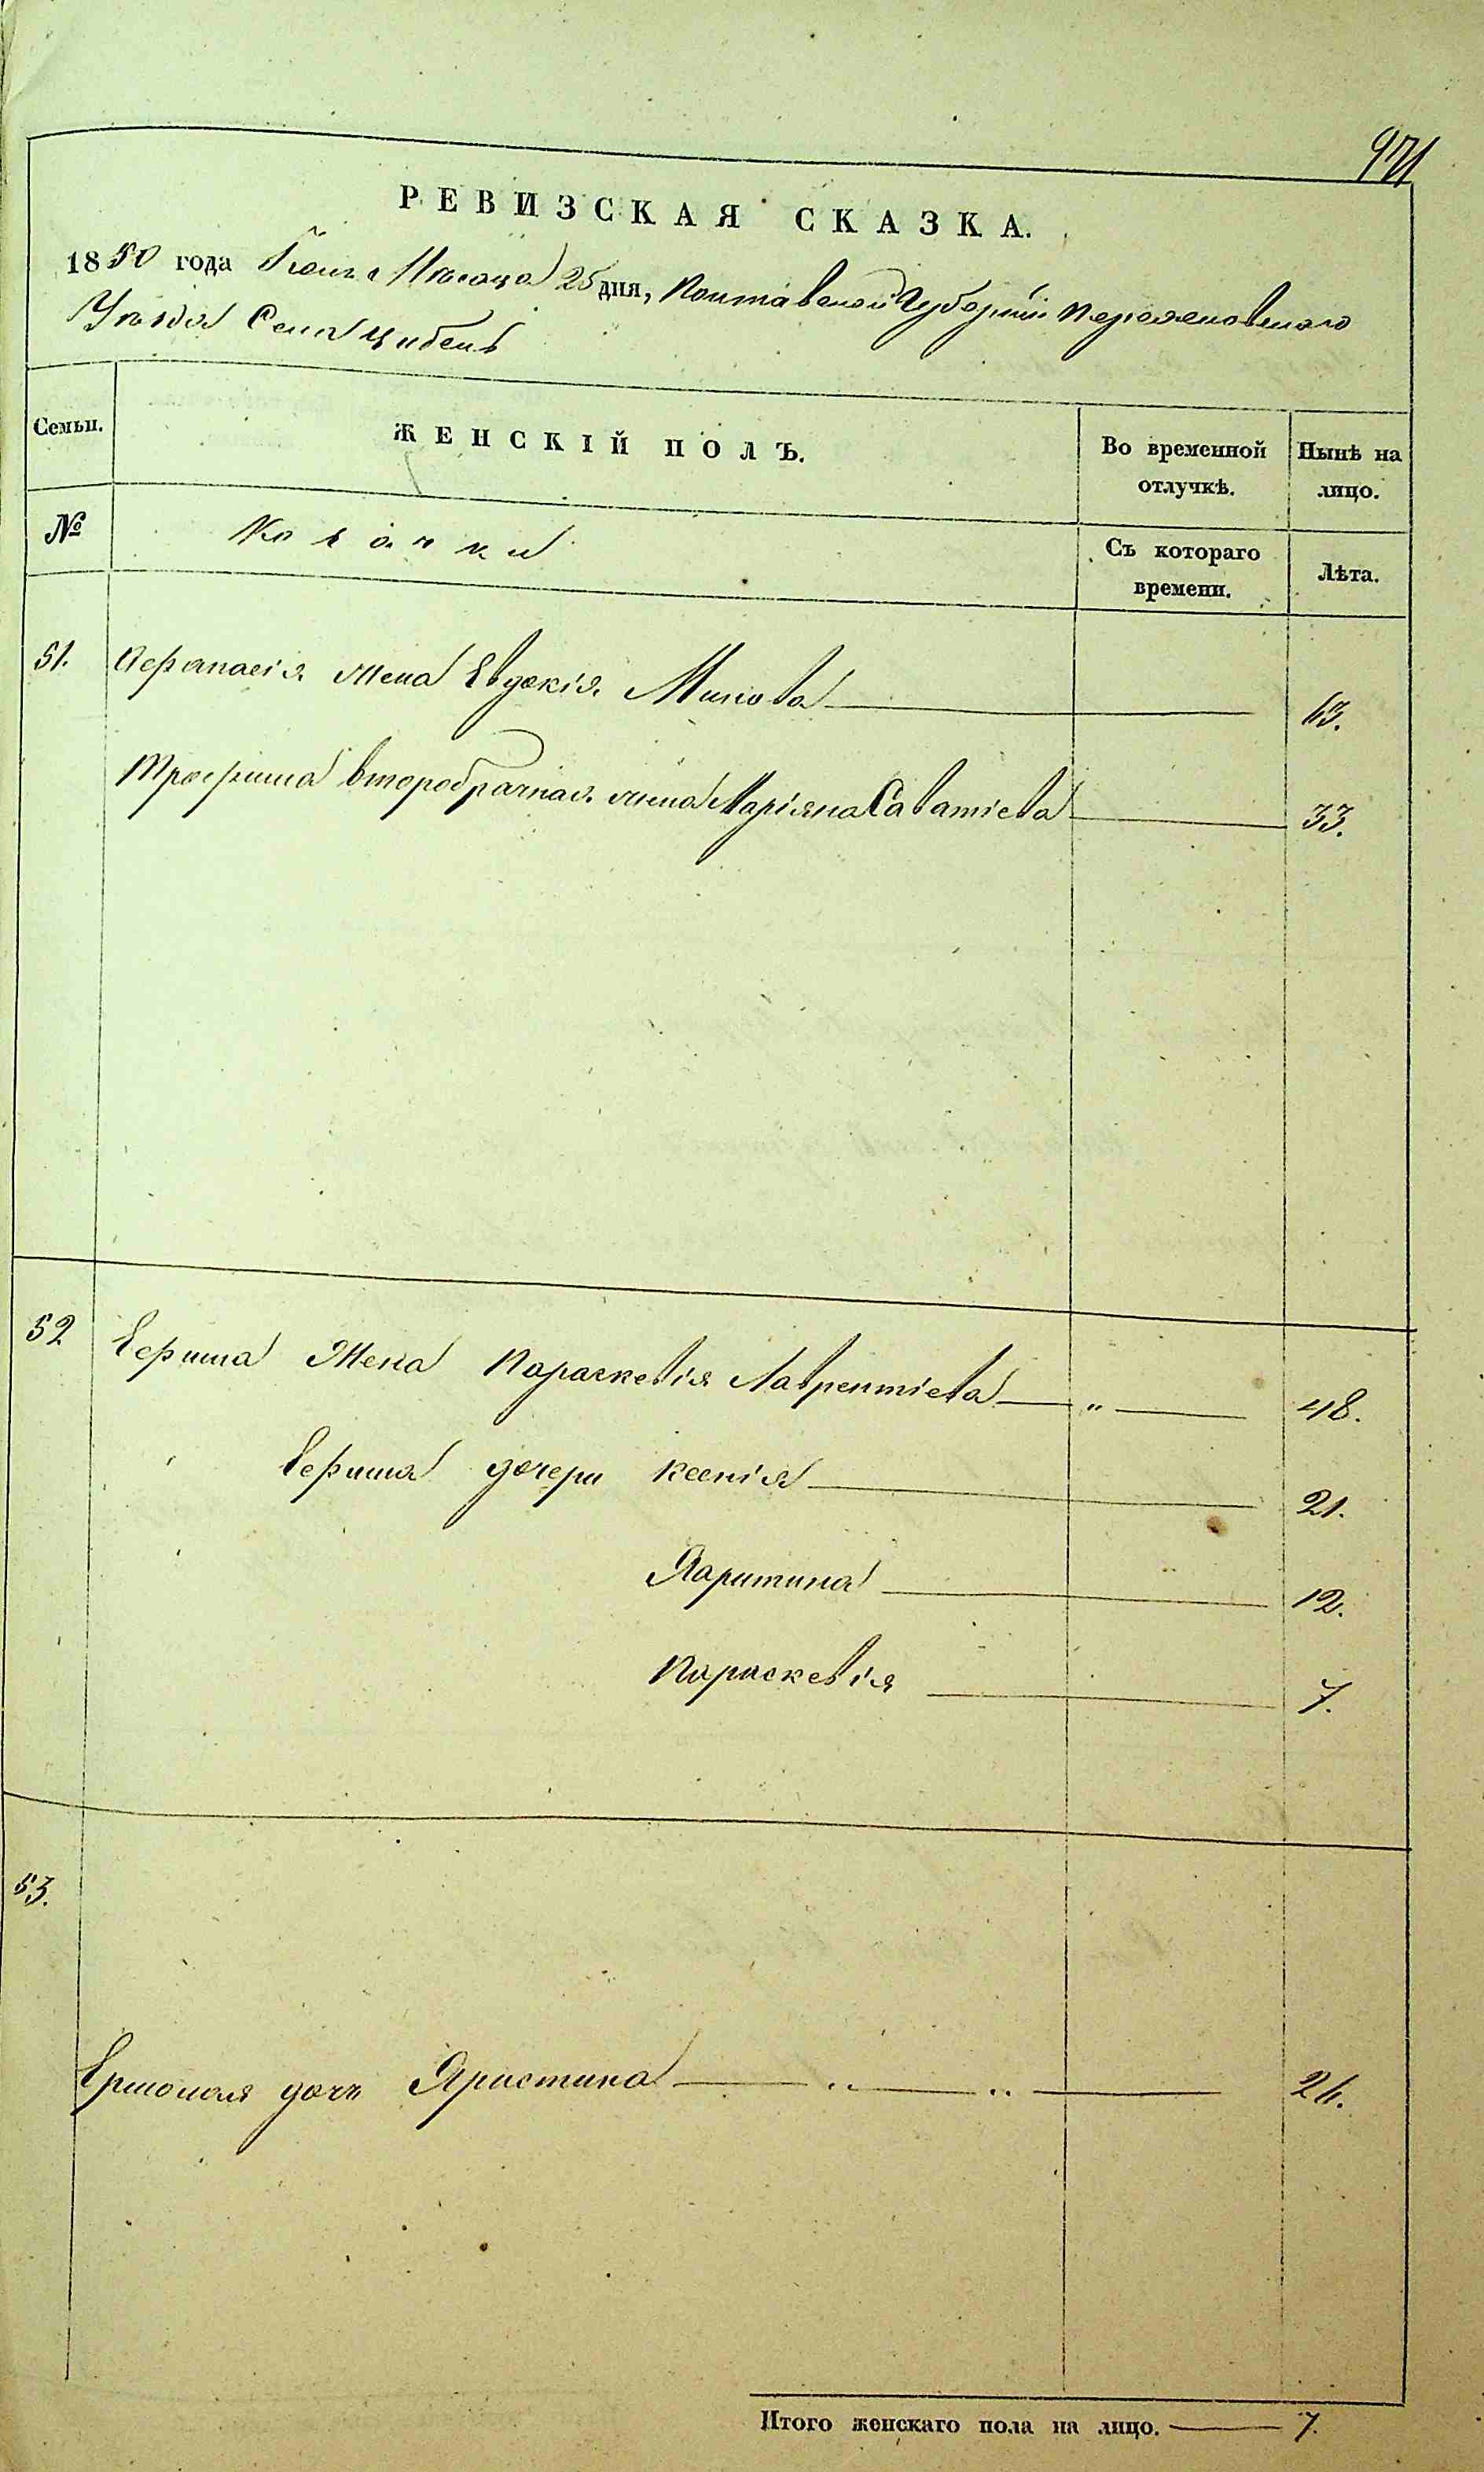 971
РЕВИЗСКАЯ СКАЗКА.
1850 года Іюня Месяца 25 дня, Полтавской Губерніи Переяславскаго
Уезда Села Цибель
Семьи.
ЖЕНСКІЙ ПОЛЪ.
Во временной отлучкѣ.
Нынѣ на лицо.
№
Козачки
Съ котораго времени.
Лѣта.
51. Афанасія жена Евдокія Минова 63.
Трофима второбрачная жена Маріяна Саватіева 33.
52 Ефима Жена Параскевія Лаврентіева " 48.
Ефима дочери Ксенія 21.
Харитина 12.
Параскевія 7.
53.
Ермолая дочь Христина " " 26.
Итого женскаго пола на лицо. 7.